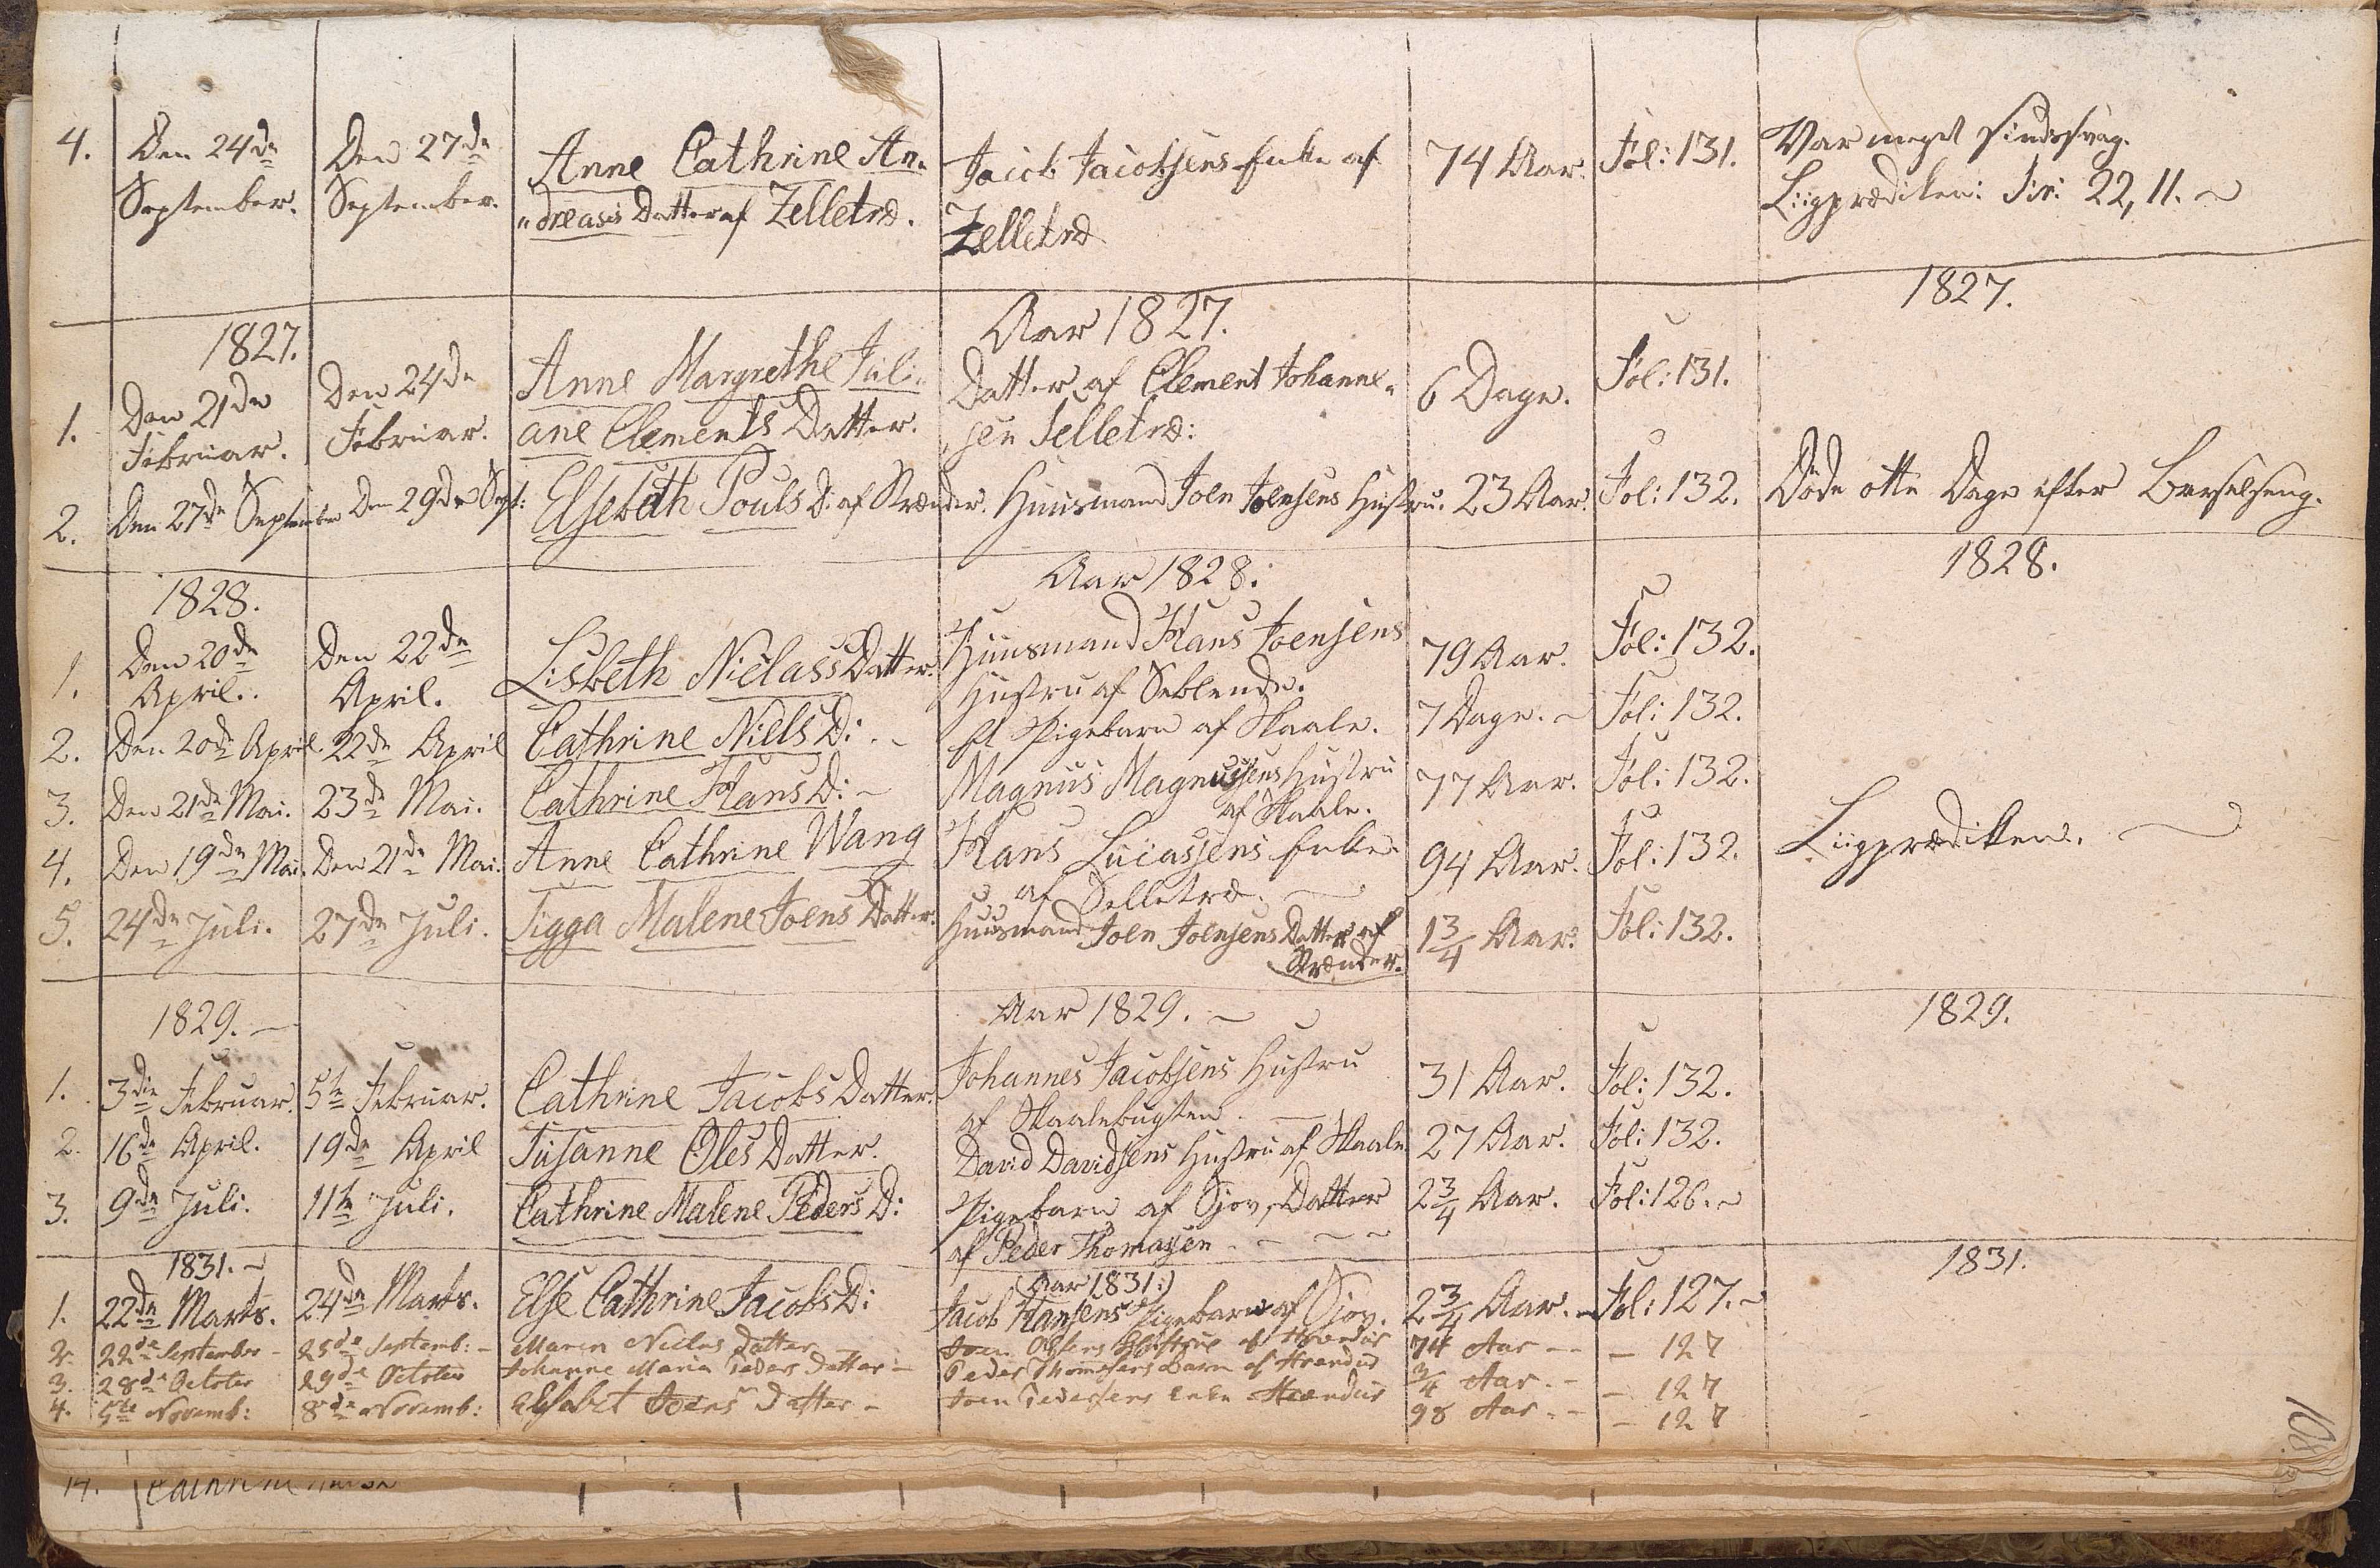 4. Den 24de Den 27de Anne Cathrine An- Jacob Jacobsens Enke af 74 Aar. Fol: 131. Var meget sindssvag.
September. September. "dreasis Datter af Zelletræ. Zelletræ Liigprædiken: Sir: 22, 11. ~
1827. Aar 1827. 1827.
1. Den 21de Den 24de Anne Margrethe Juli- Datter af Clement Johanne- 6 Dage. Fol: 131.
Februar. Februar. ane Clements Datter. sen Selletræ:
2. Den 27de September Den 29de Sept: Elsebeth Pouls D: af Strænder. Huusmand Joen Joensens Hustru. 23 Aar. Fol: 132. Döde otte Dage efter Barselseng.
1828. Aar 1828. 1828.
1. Den 20de Den 22de Lisbeth Niclass Datter. Huusmand Hans Joensens 79 Aar. Fol: 132.
April.. April. Hustru af Seblende.
2. Den 20de April. 22de April Cathrine Niels D: ~ Et Pigebarn af Skaale. 7 Dage. ~ Fol: 132.
3. Den 21de Mai. 23de Mai. Cathrine Hans D: ~ Magnus Magnussens Hustru 77 Aar. Fol: 132.
af Skaale.
4. Den 19de Mai. Den 21de Mai. Anne Cathrine Wang Hans Lucassens Enke 94 Aar. Fol: 132. Liigprædiken. ~
af Selletræ. ~
5. 24de Juli. 27de Juli. Sigga Malene Joens Datter. Huusmand Joen Joensens Datter af 1 3/4 Aar. Fol: 132.
Strænder.
1829. ~ Aar 1829. ~ 1829.
1. 3die Februar. 5te Februar. Cathrine Jacobs Datter. Johannes Jacobsens Hustru 31 Aar. Fol: 132.
af Skaalebugten. ~
2. 16de April. 19de April Susanne Oles Datter. David Davidsens Hustru af Skaale 27 Aar. Fol: 132.
3. 9de Juli. 11te Juli. Cathrine Malene Peders D: Pigebarn af Gjov, Datter 2 3/4 Aar. Fol: 126. ~
af Peder Thomassen - ~ ~ ~
1831. ~ (Aar 1831:) 1831.
1. 22de Marts. 24de Marts. Else Cathrine Jacobs D: Jacob Hansens Pigebarn af Gjov. 2 3/4 Aar. ~ Fol: 127. ~
2. 22de September - 25de Septemb: - Maren Niclas Datter Joen Olsens Hustrue af Strendur 74 Aar - - - 127
3. 28de October 29de October Johanne Maria Peders Datter - Peder Thomesens Barn af Strendur 3/4 Aar. - - 127
4. 5te Novemb: 8de Novemb: Elsebet Joens Datter - Joen Pedersens Enke Strendur 98 Aar. - - 127
108
14.